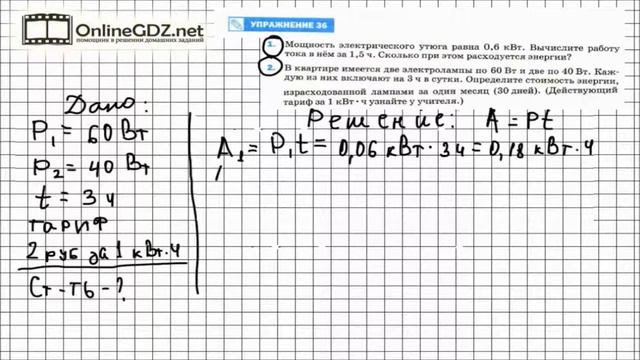 OnlineGDZ.net
помощник в решении домашних заданий
УПРАЖНЕНИЕ 36
1. Мощность электрического утюга равна 0,6 кВт. Вычислите работу
тока в нём за 1,5 ч. Сколько при этом расходуется энергии?
2. В квартире имеется две электролампы по 60 Вт и две по 40 Вт. Каж-
дую из них включают на 3 ч в сутки. Определите стоимость энергии,
израсходованной лампами за один месяц (30 дней). (Действующий
тариф за 1 кВт · ч узнайте у учителя.)
Дано:
P₁ = 60 Вт
P₂ = 40 Вт
t = 3 ч
тариф
2 руб за 1 кВт·ч
Ст-ть - ?
Решение: A = Pt
A₁ = P₁t = 0,06 кВт · 3ч = 0,18 кВт·ч